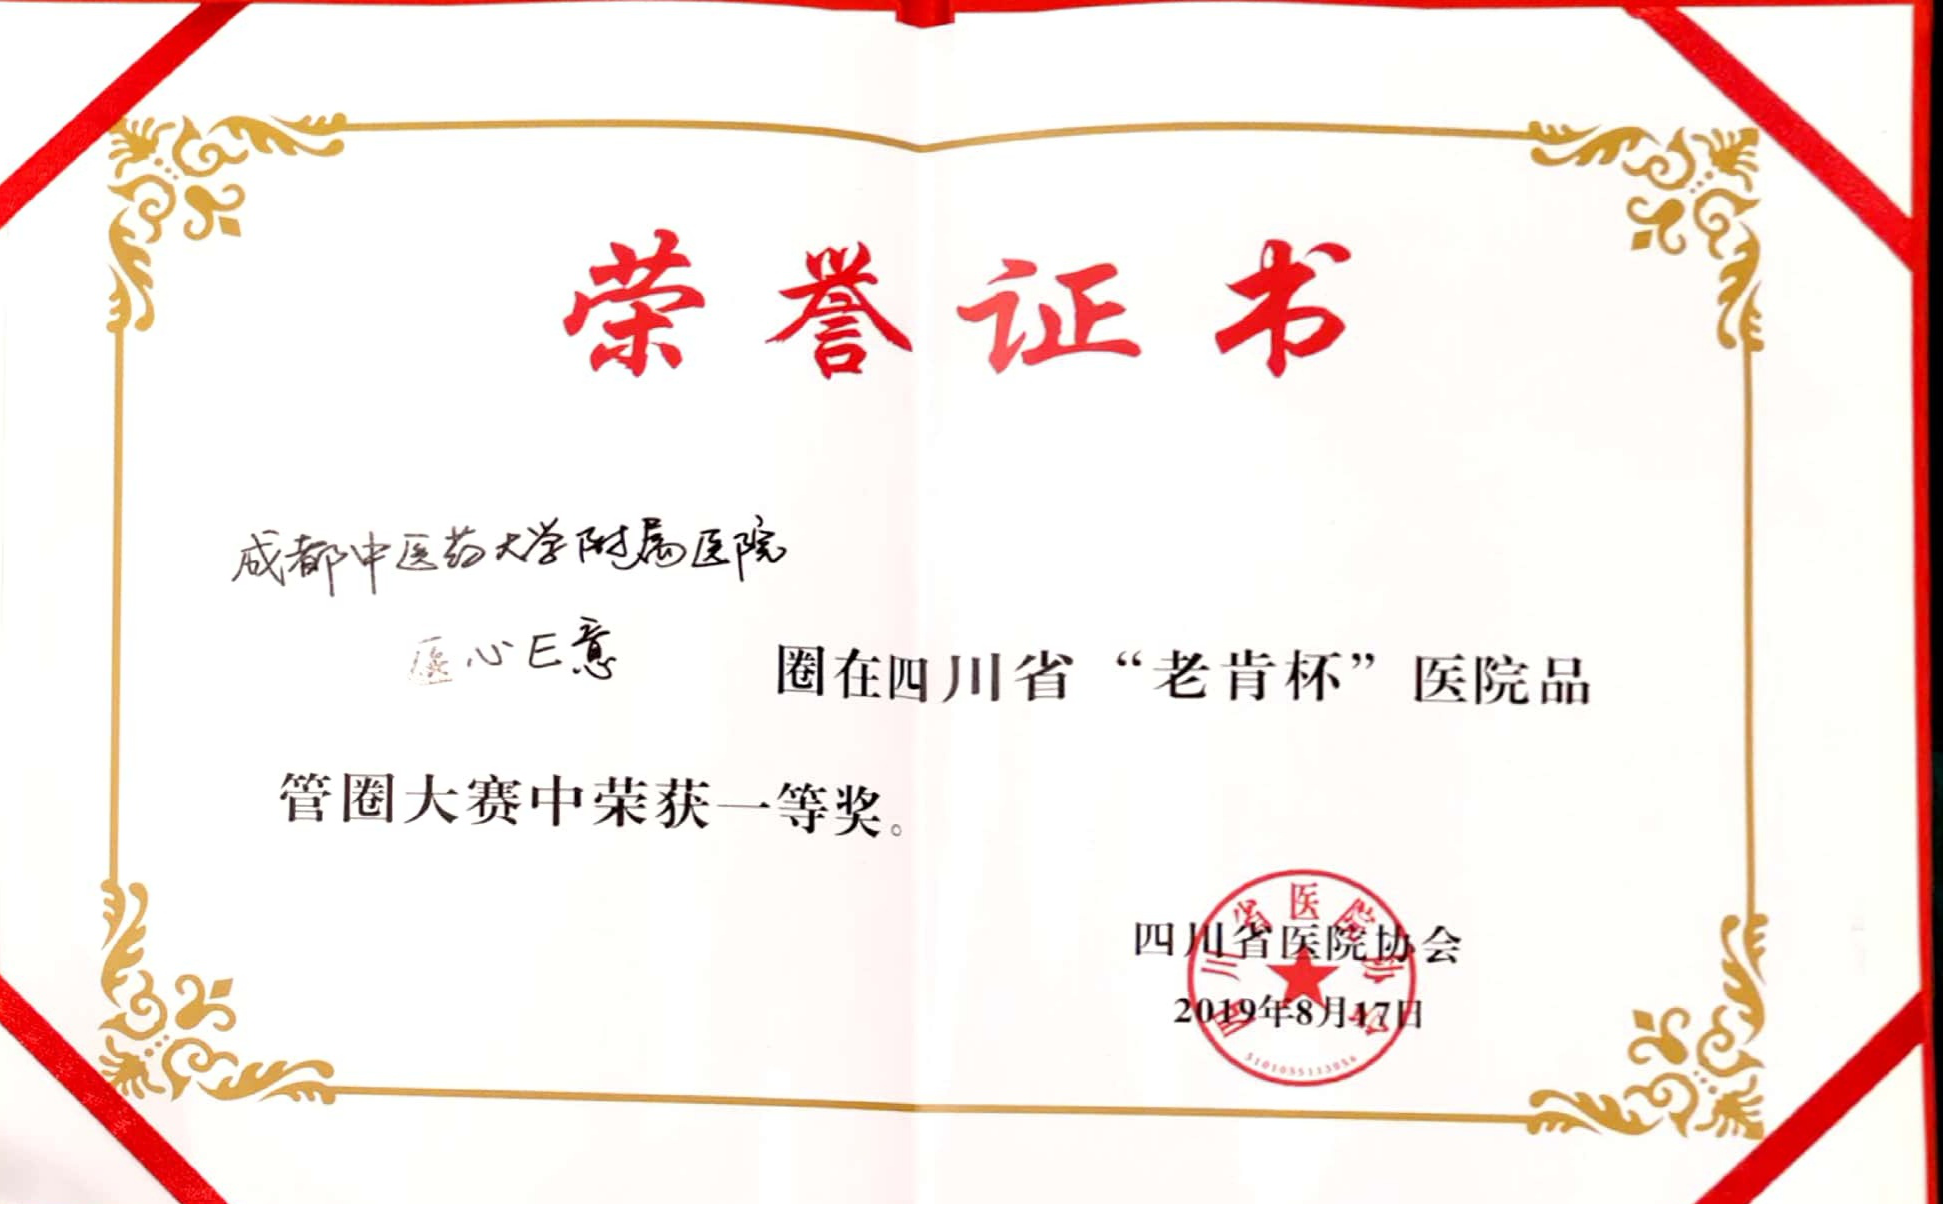 荣誉证书
成都中医药大学附属医院
心E意 圈在四川省“老肯杯”医院品
管圈大赛中荣获一等奖。
四川省医院协会
2019年8月17日
四川省医院协会